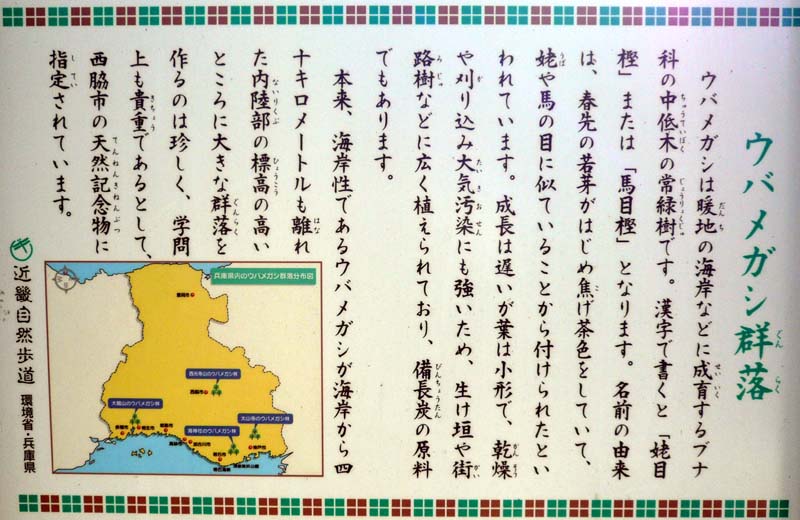 ウバメガシ群落
ウバメガシは暖地の海岸などに成育するブナ
科の中低木の常緑樹です。漢字で書くと「姥目
樫」または「馬目樫」となります。名前の由来
は、春先の若芽がはじめ焦げ茶色をしていて、
姥や馬の目に似ていることから付けられたとい
われています。成長は遅いが葉は小形で、乾燥
や刈り込み大気汚染にも強いため、生け垣や街
路樹などに広く植えられており、備長炭の原料
でもあります。
本来、海岸性であるウバメガシが海岸から四
十キロメートルも離れ
た内陸部の標高の高い
ところに大きな群落を
作るのは珍しく、学問
上も貴重であるとして、
西脇市の天然記念物に
指定されています。
兵庫県内のウバメガシ群落分布図
豊岡市
西光寺山のウバメガシ林
西脇市
大避山のウバメガシ林
太山寺のウバメガシ林
海神社のウバメガシ林
神戸市
明石市
近畿自然歩道 環境省・兵庫県